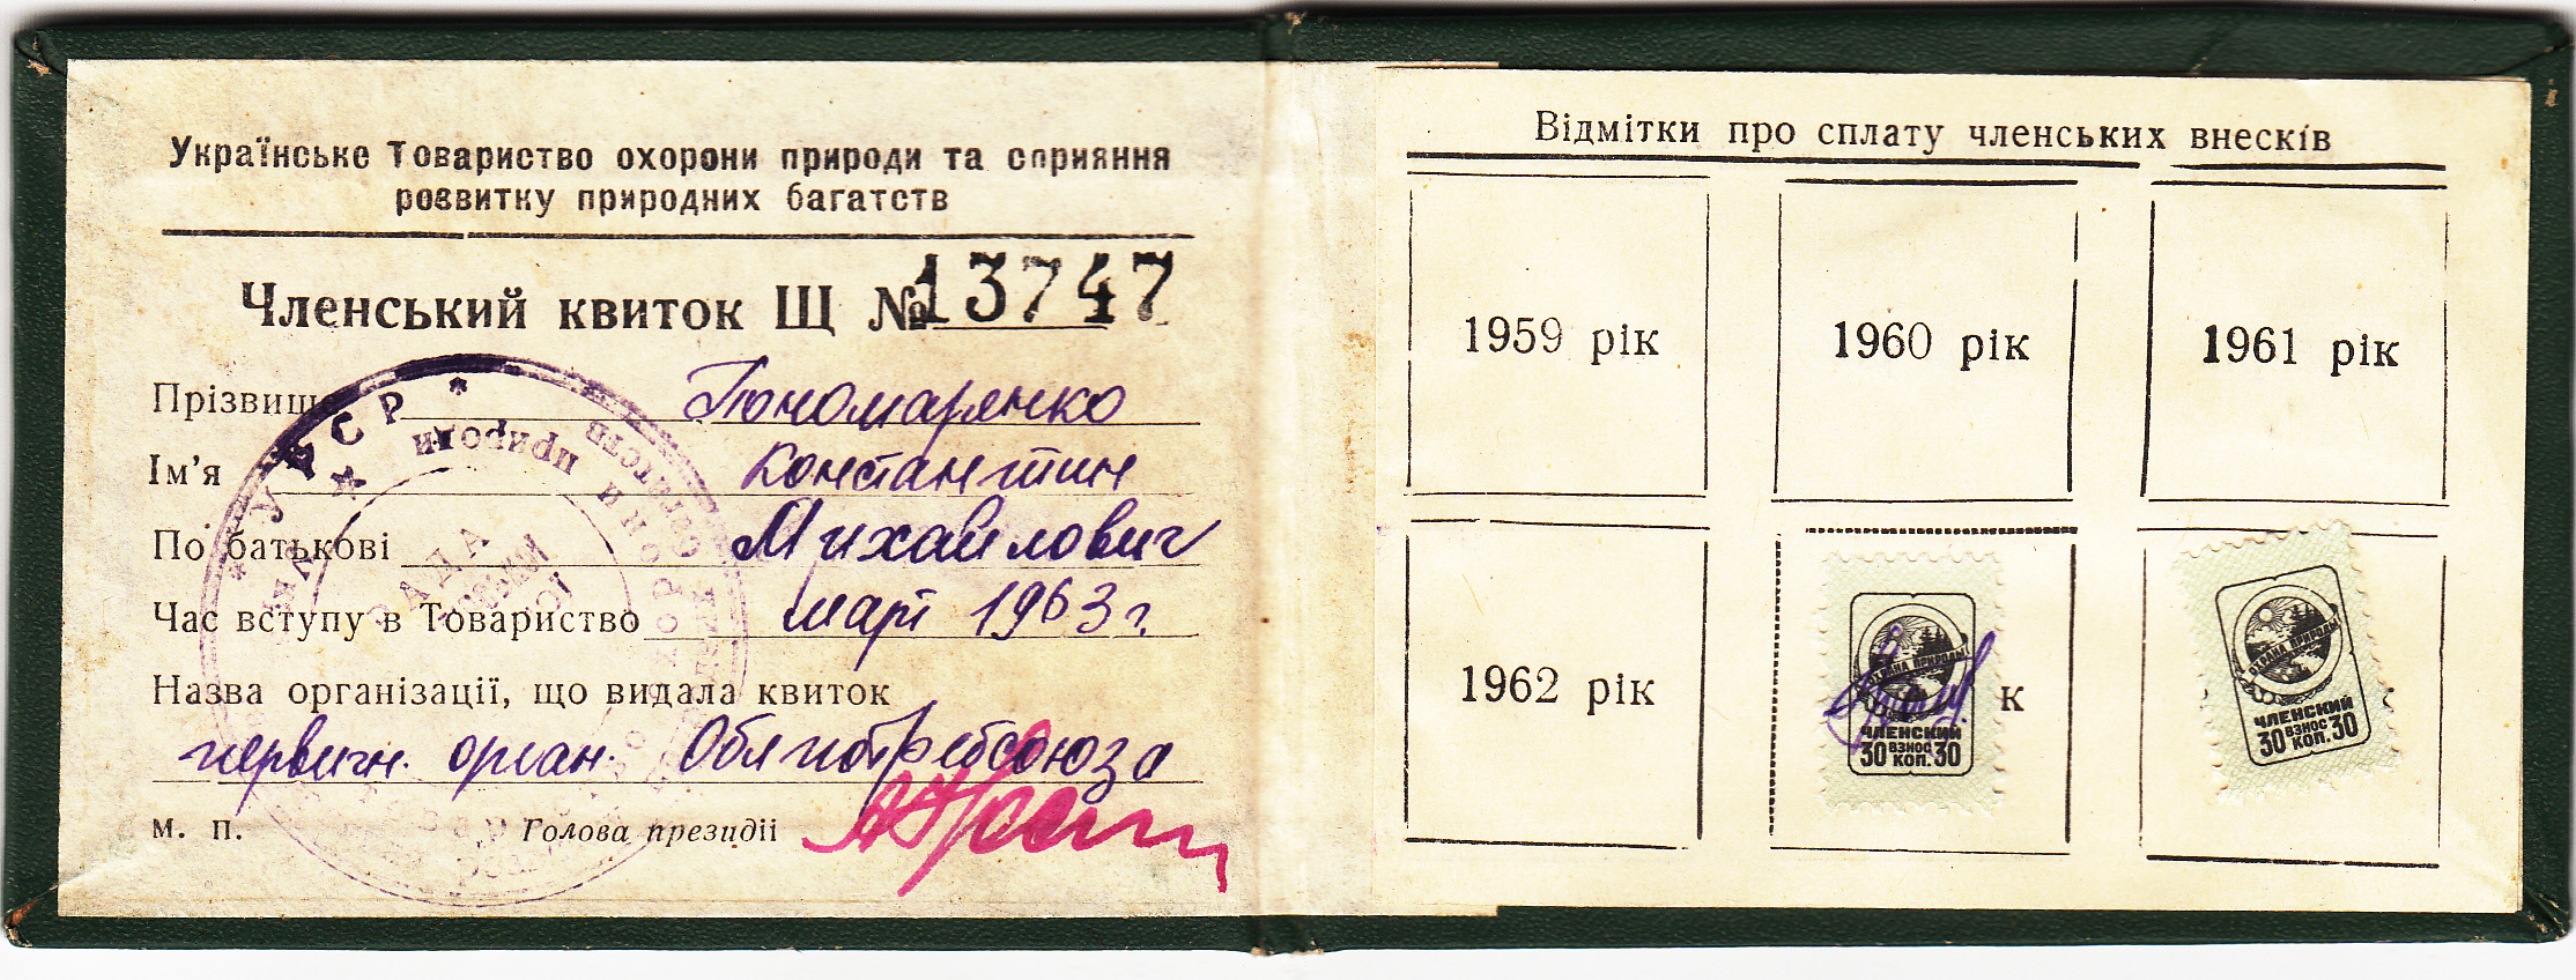 Українське Товариство охорони природи та сприяння
розвитку природних багатств
Членський квиток Щ № 13747
Прізвище Пономаренко
Ім'я Константин
По батькові Михайлович
Час вступу в Товариство март 1963 г.
Назва організації, що видала квиток
первичн. орган. Облпотребсоюза
м. п. Голова президії
* УРСР *
природи
Відмітки про сплату членських внесків
1959 рік
1960 рік
1961 рік
1962 рік
к
ОХРАНА ПРИРОДЫ
ЧЛЕНСКИЙ
ВЗНОС
30 КОП. 30
ОХРАНА ПРИРОДЫ
ЧЛЕНСКИЙ
ВЗНОС
30 КОП. 30